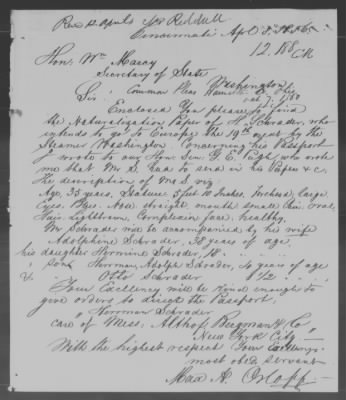 Cincinnati Apl 5. 1856
12,188 M
Hon. Wm Marcy
Secretary of State
Washington
Sir! Common Pleas Hamilton Co Ohio
Oct 7, 1850
Enclosed You please to find
the Naturalization Paper of H. Schrader, who
intends to go to Europe the 19th inst by the
Steamer Washington. Concerning his Passport
I wrote to our Hon. Sen. G. E. Pugh, who wrote
me that Mr S. had to send in his Papers & c.
The description of Mr S. viz
Age, 35 years, Stature: 5 feet 10 Inches, forehead, large,
Eyes, Nose straight, mouth small, Chin, oval,
Hair, lightbrown, Complexion face, healthy.
Mr Schrader will be accompanied by his wife
Adolphine Schrader, 38 years of age,
his daughter Hermine Schrader, 18 "
" sons Herrman Adolph Schrader, 4 years of age
& " Otto Schrader 1 1/2 "
Your Excellency will be kind enough to
give orders to direct the Passport,
"Herrman Schrader
care of Mess. Althof Bergman & Co"
New York City.
With the highest respect Your Excellency's
most obed servant
Max H.